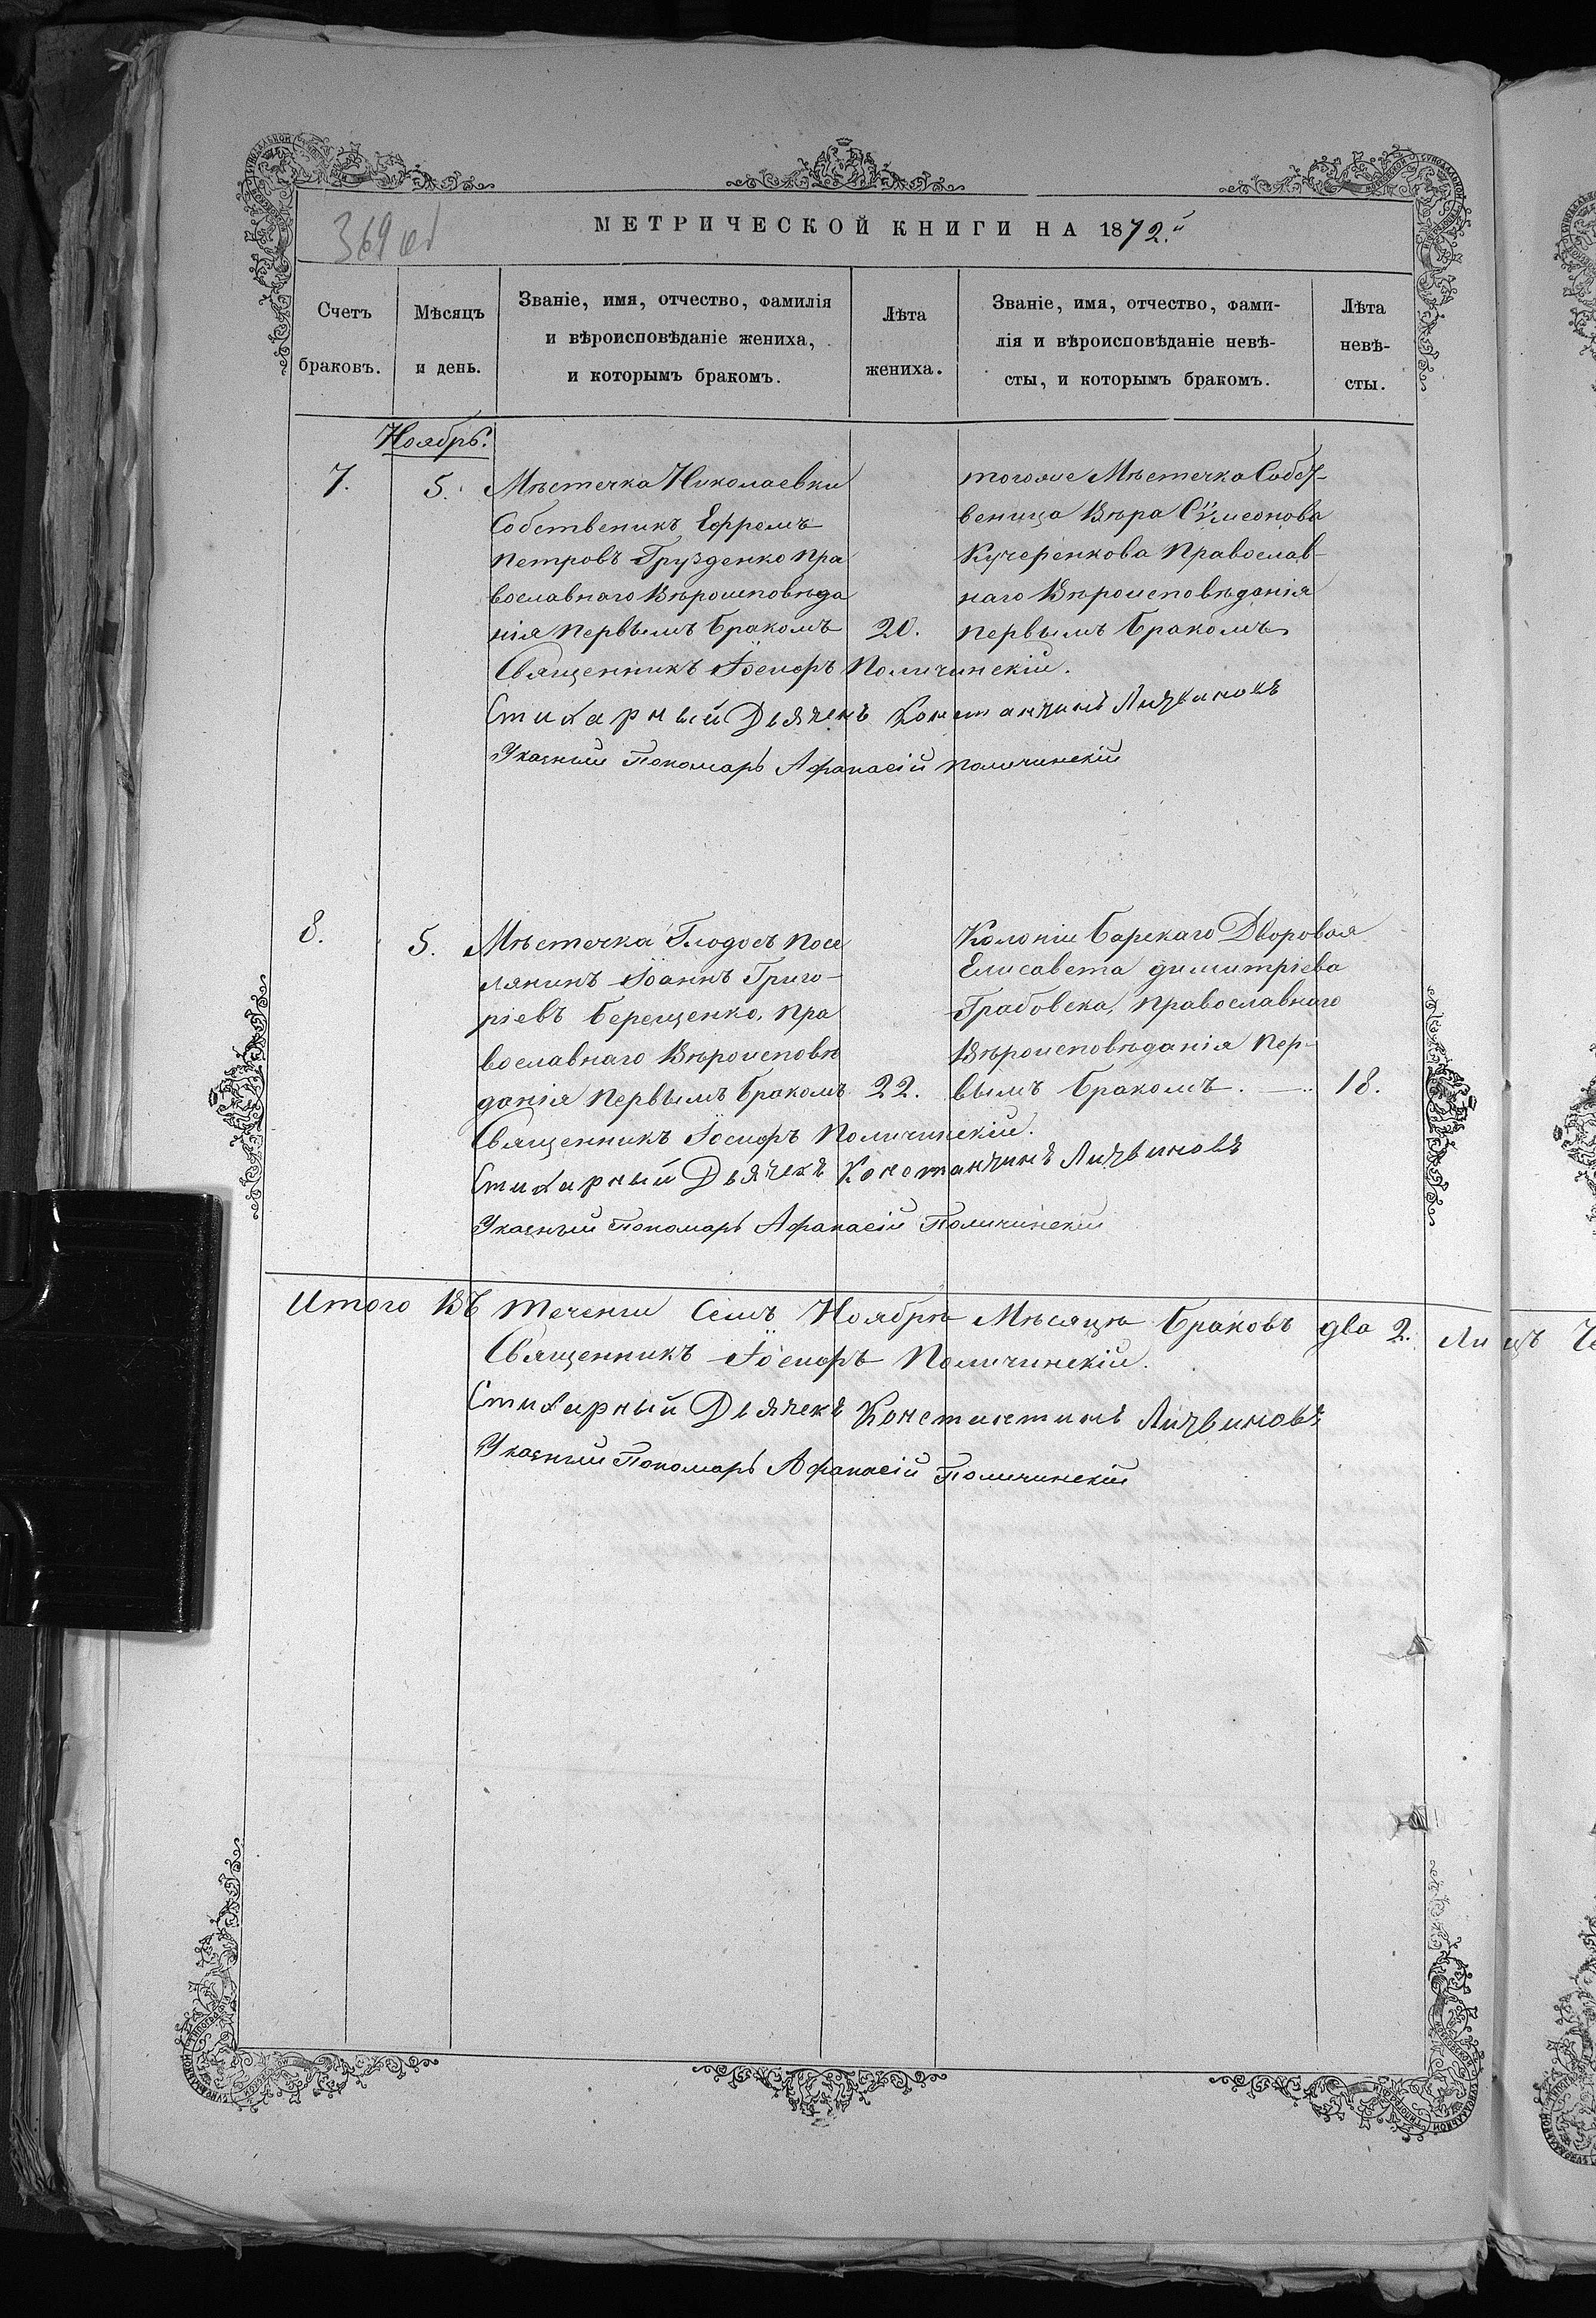 369 об
МЕТРИЧЕСКОЙ КНИГИ НА 1872.й
Счетъ браковъ.
Мѣсяцъ и день.
Званіе, имя, отчество, фамилія
и вѣроисповѣданіе жениха,
и которымъ бракомъ.
Лѣта жениха.
Званіе, имя, отчество, фами-
лія и вѣроисповѣданіе невѣ-
сты, и которымъ бракомъ.
Лѣта
невѣ-
сты.
Ноябрь.
7.
5.
Мѣстечка Николаевки
Собственикъ Ефремъ
Петровъ Грузденко Пра
вославнаго Вѣроисповѣда
нія Первымъ Бракомъ
20.
тогоже Мѣстечка Собст-
веница Вѣра Сѵмеонова
Кучеренкова Православ-
наго Вѣроисповѣданія
Первымъ Бракомъ
Священникъ Іосифъ Поличинскій.
Стихарный Дьячекъ Константинъ Литвиновъ
Указный Пономарь Афанасій Поличинскій
8.
5.
Мѣстечка Глодосъ Посе
лянинъ Іоаннъ Григо-
ріевъ Берещенко, Пра
вославнаго Вѣроисповѣ
данія Первымъ Бракомъ
22.
Колоніи Барскаго Дворовая
Елисавета Димитріева
Грабовска, Православнаго
Вѣроисповѣданія Пер-
вымъ Бракомъ. —
18.
Священникъ Іосифъ Поличинскій.
Стихарный Дьячекъ Константинъ Литвиновъ
Указный Пономарь Афанасій Поличинскій
Итого въ теченіи Семъ Ноябрѣ Мѣсяцѣ Браковъ два 2. Лицъ
Священникъ Іосифъ Поличинскій.
Стихарный Дьячекъ Константинъ Литвиновъ
Указный Пономарь Афанасій Поличинскій